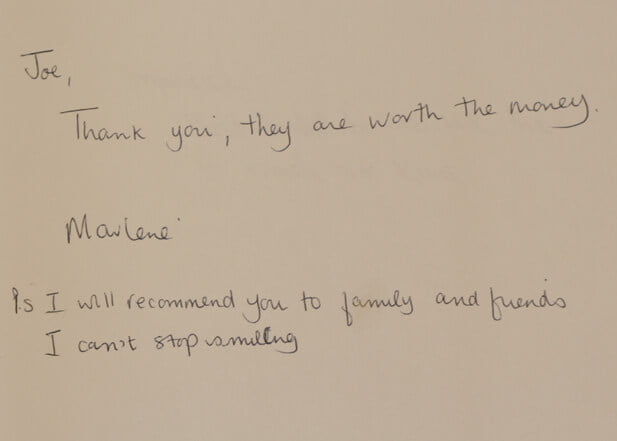 Joe,
Thank you, they are worth the money.
Marlene
P.s I will recommend you to family and friends
I can't stop smiling